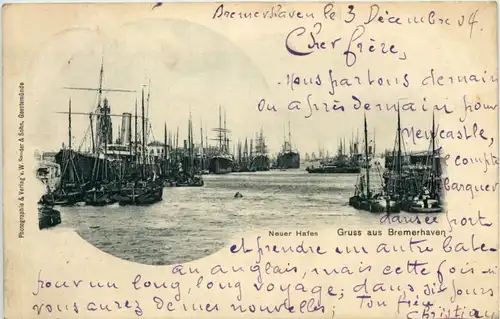 Bremerhaven le 3 Décembre 04.
Cher frère,
nous partons demain
ou après demain pour
Newcastle,
je compte
barquer
dans ce port
et prendre un autre bate-
au anglais, mais cette fois
pour un long, long voyage; dans dix jours
vous aurez de mes nouvelles; Ton frère
Christian
Neuer Hafen
Gruss aus Bremerhaven
Photographie & Verlag v. W. Sander & Sohn, Geestemünde